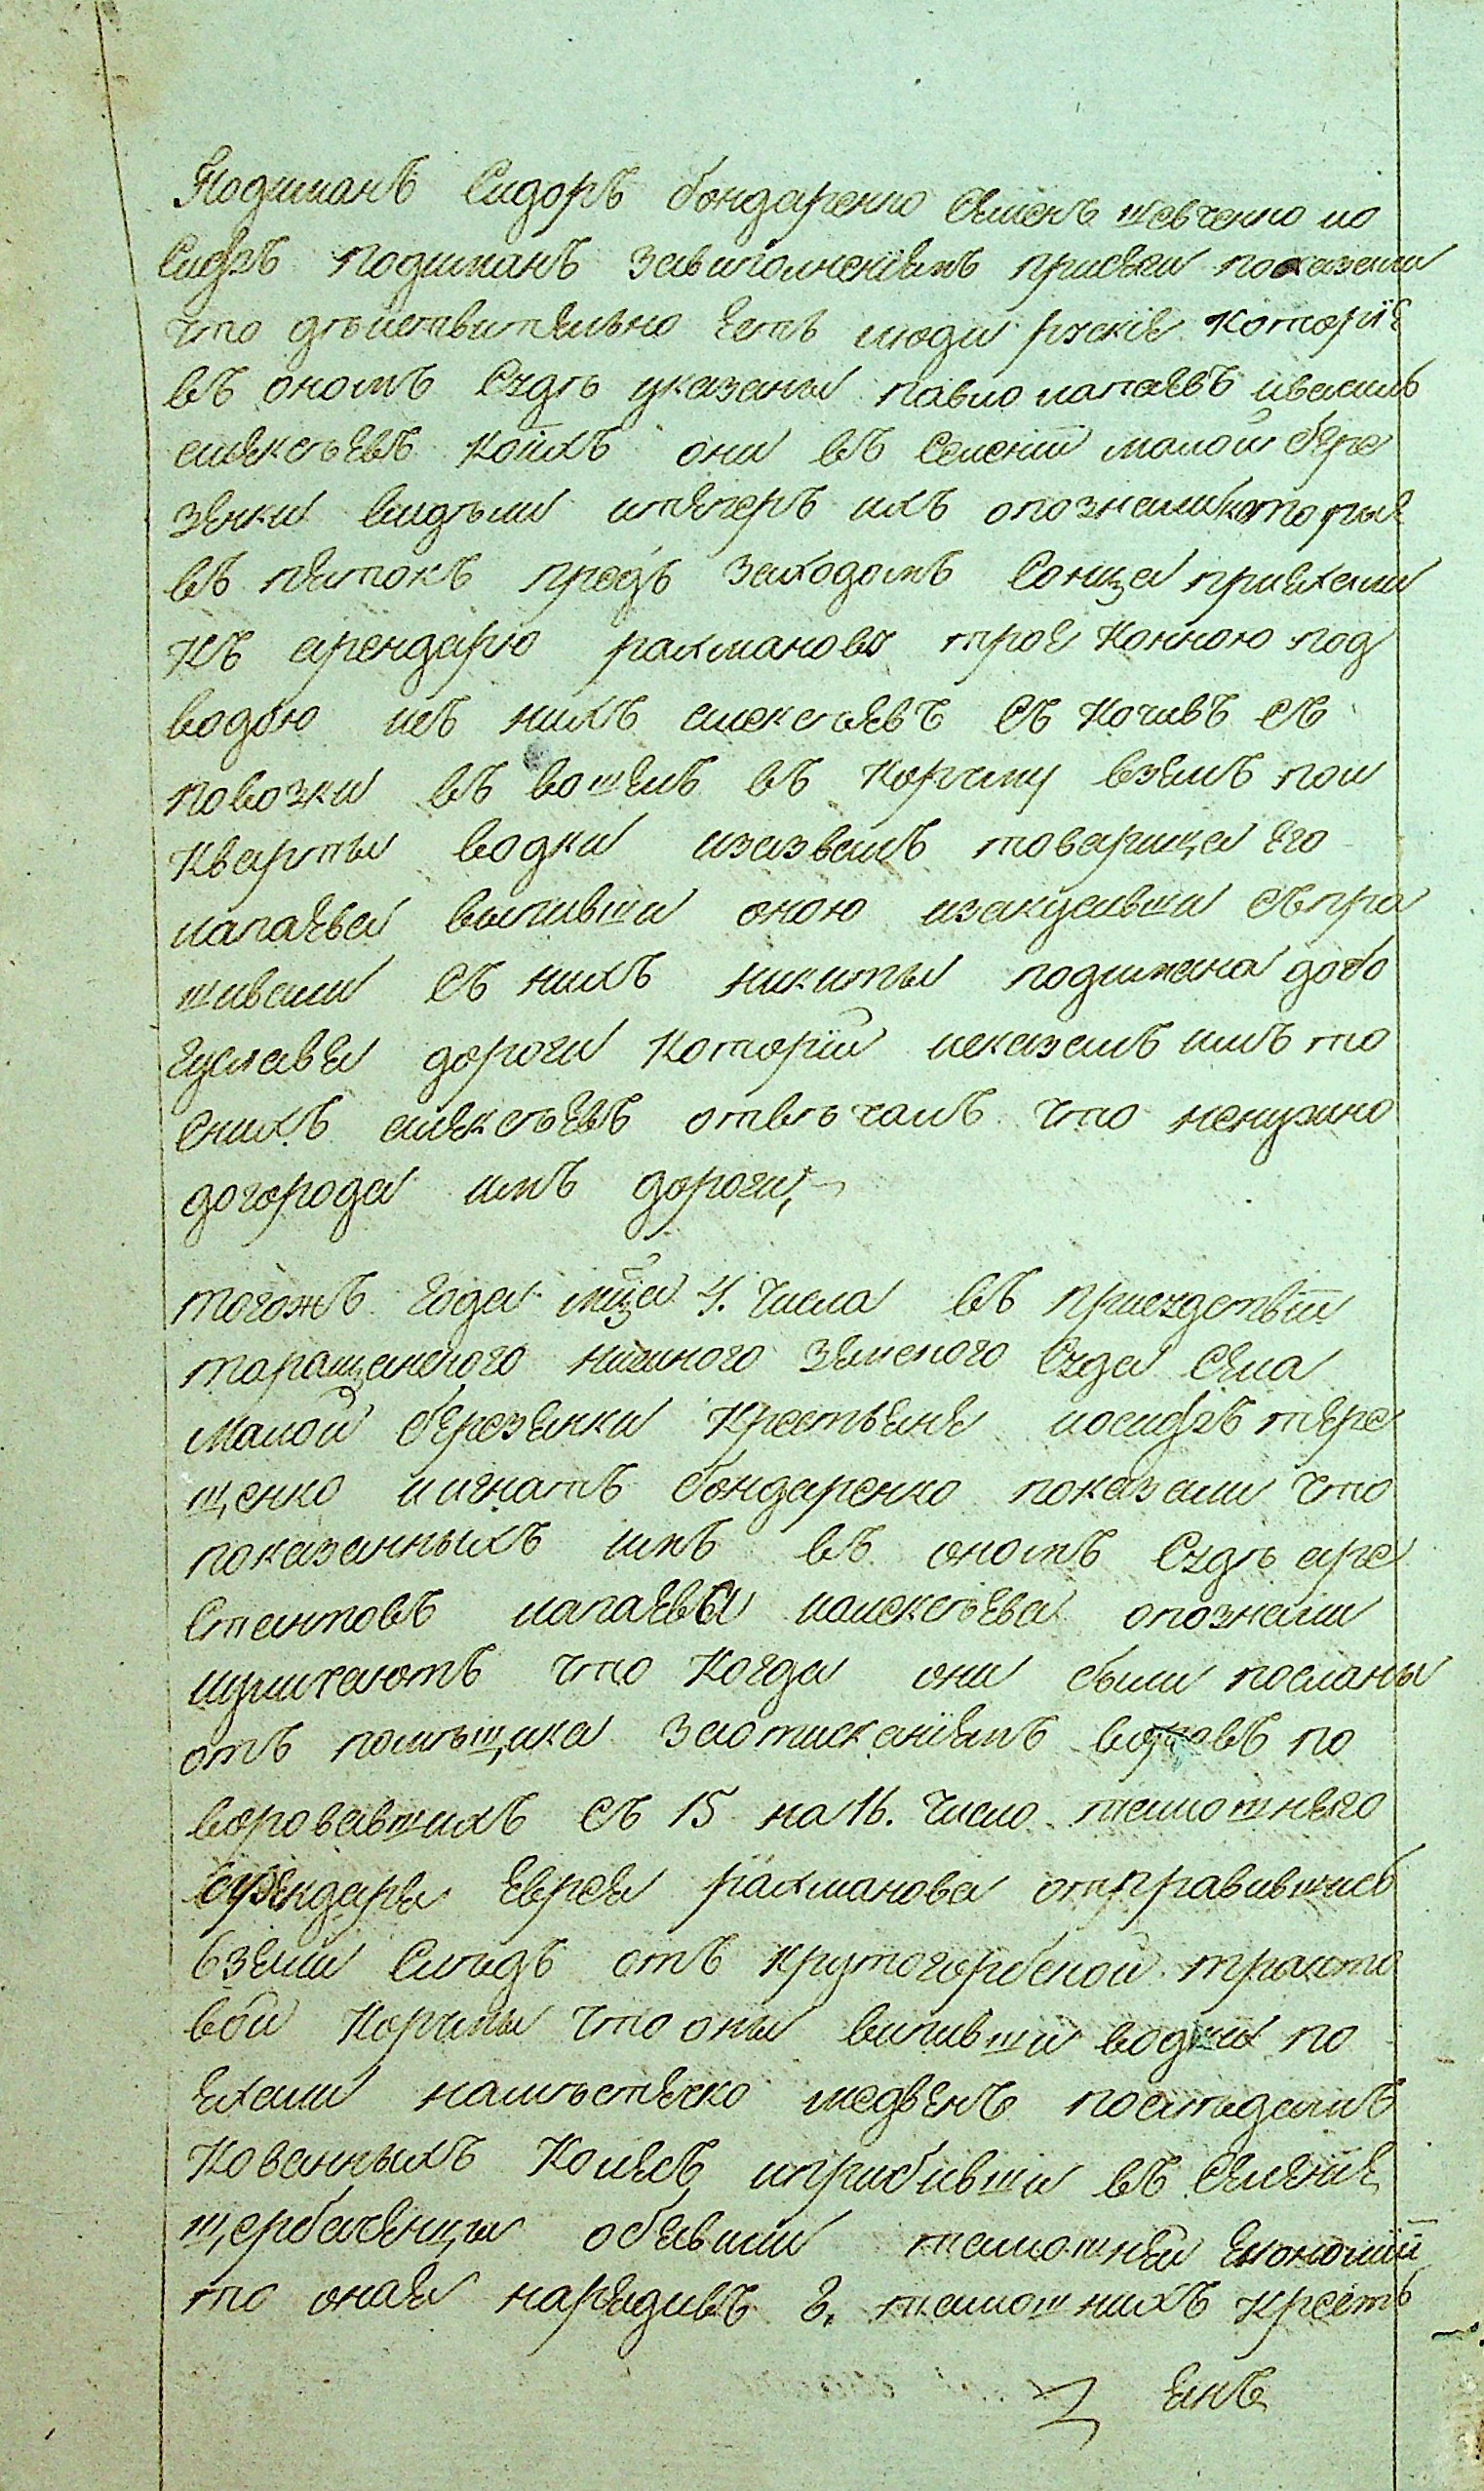 Подиманъ Сидоръ бондаренко Семенъ шевченко ио
Сифъ подиманъ завиполненіемъ присяги показали
что дѣиствительно Есть люди рускіе которіе
въ ономъ Судѣ указаны павло лапаевъ ивасиль
алексѣевъ коихъ они въ Селеніи малой бере
зянки видѣли итеперъ ихъ опознали которые
въ пятокъ предъ заходомъ Сонца приехали
къ арендарю рахманову трое конною под
водою изъ нихъ алексеевъ Съ кочивъ съ
повозки въ вошелъ въ корчму взялъ пол
кварты водки изазвалъ товарища его
лапаева выпивши оною изакусивши съпра
шивали Съ нихъ никиты подимана добо
гуслава дороги которій исказалъ имъ то
Снихъ алексѣевъ отвѣчалъ что ненужно
догорода имъ дороги,
тогожъ года мца 4. числа въ присудствіи
таращанского нижнего земского Суда села
малой березянки крестьяне иосифъ тере
щенко иигнатъ бондаренко показали что
показанныхъ имъ въ ономъ Судѣ аре
стантовъ лапаева иалексѣева опознали
иуличаютъ что когда они были посланы
отъ помѣщика заотисканіемъ воровъ по
воровавшихъ съ 15 на 16. число тамошнего
арендара еврея рахманова отправившись
взяли Слидъ отъ крутогорбской тракто
вой корчмы что оны випивши водки по
ехали намѣстечко медвенъ послидамъ
кованныхъ колесъ иприбивши въ Селение
щербаченци обявили тамошней економіи
то оная нарядивъ 2. тамошнихъ кресть
янъ